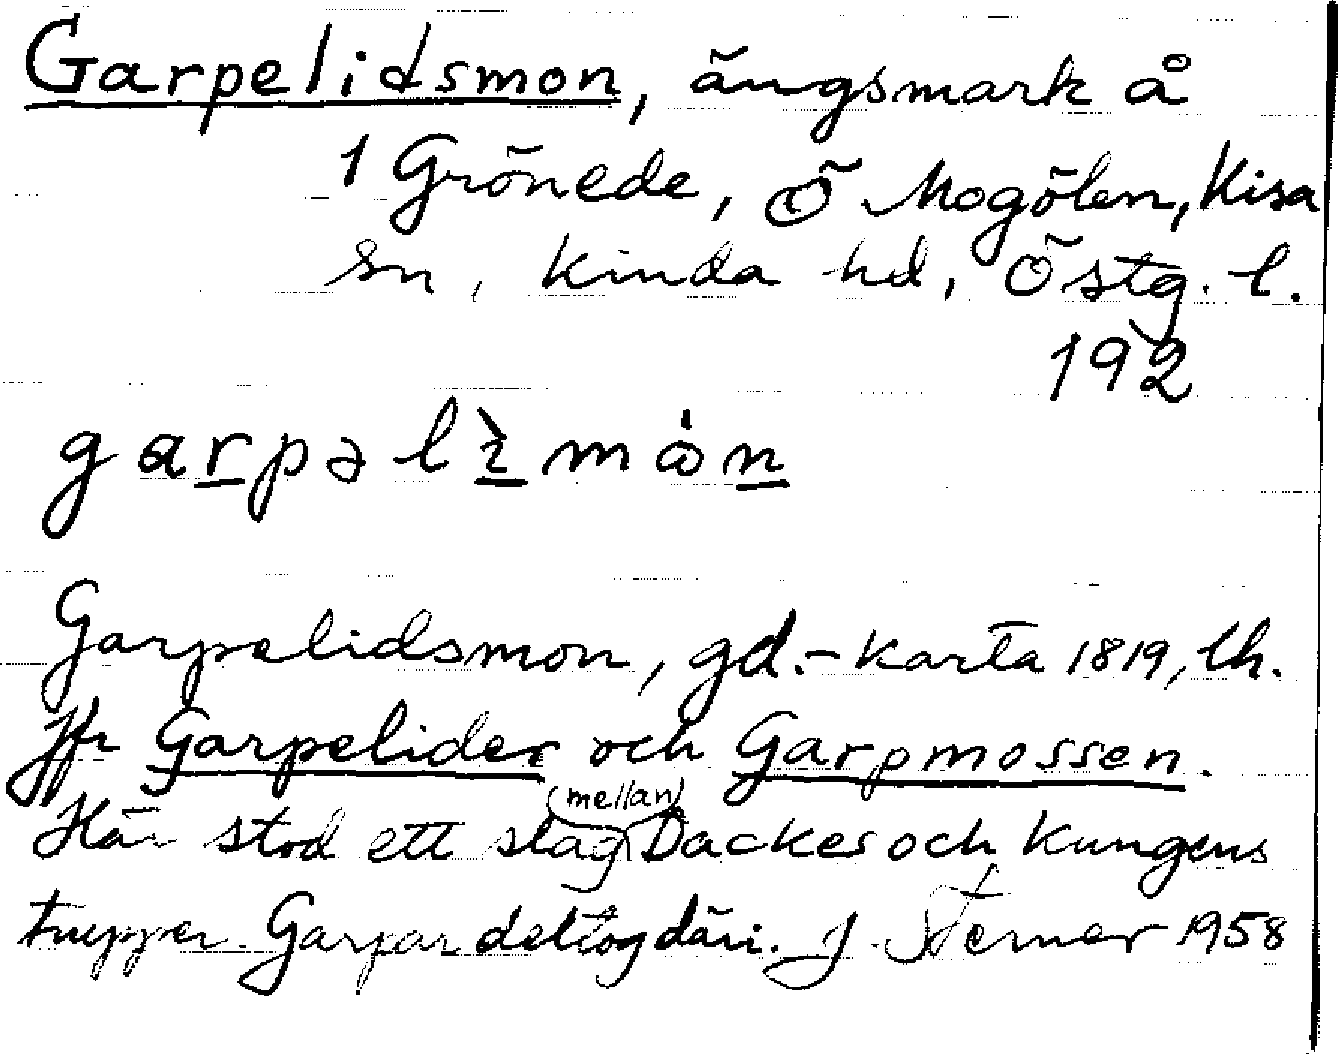 Garpelidsmon, ängsmark å
1 Grönede, Ö Mogölen, Kisa
sn, Kinda hd, Östg. l.
192
garpəlɩ̀mȯn
Garpelidsmon, gd.-karta 1819, lh.
Jfr Garpelider och Garpmossen.
Här stod ett slag (mellan) Dackes och Kungens
trupper. Garpar deltog däri. J. Sterner 1958